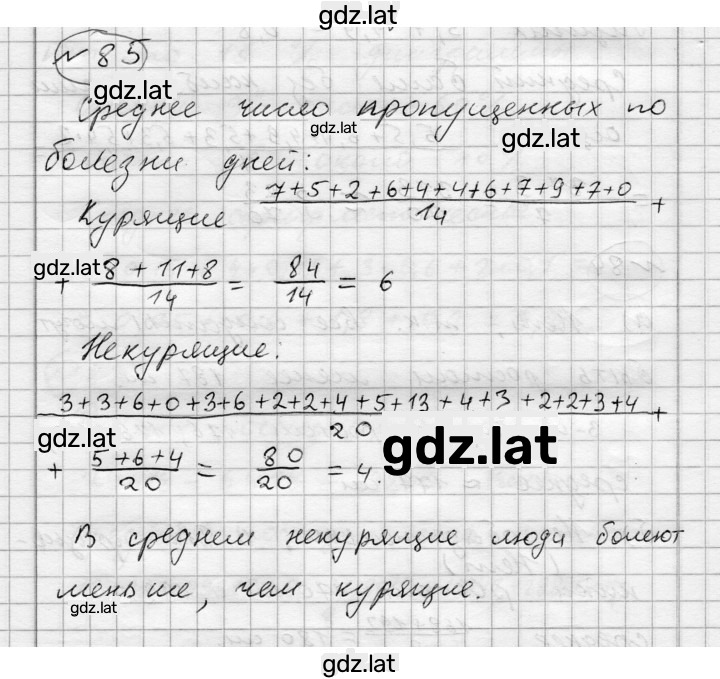 gdz.lat
№ 85
gdz.lat
Среднее число пропущенных по
gdz.lat
gdz.lat
болезни дней:
Курящие 7+5+2+6+4+4+6+7+9+7+0/14 +
gdz.lat
+ 8+11+8/14 = 84/14 = 6
Некурящие:
3+3+6+0+3+6+2+2+4+5+13+4+3+2+2+3+4/20 +
gdz.lat
gdz.lat
+ 5+6+4/20 = 80/20 = 4.
В среднем некурящие люди болеют
меньше, чем курящие.
gdz.lat
gdz.lat